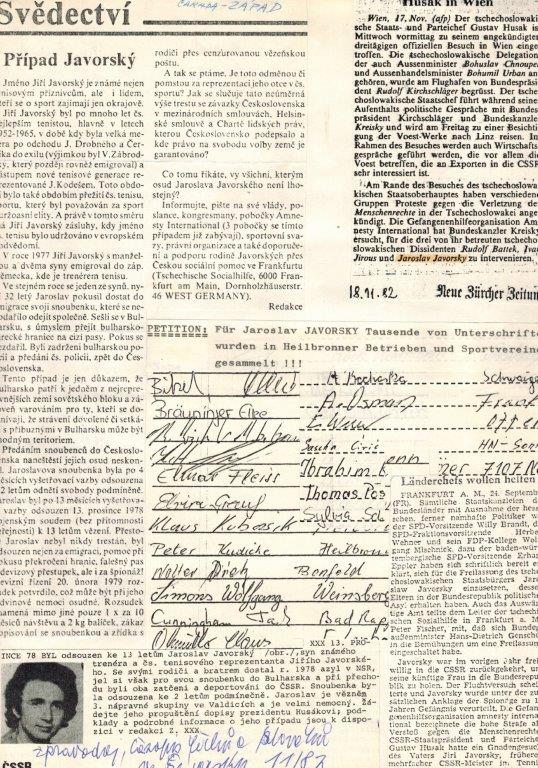 Svědectví
CANADA-ZAPAD
Případ Javorský
Jméno Jiří Javorský je známé nejen
tenisovým příznivcům, ale i lidem,
kteří se o sport zajímají jen okrajově.
Jiří Javorský byl po mnoho let čs.
nejlepším tenistou, hlavně v letech
1952-1965, v době kdy byla velká me-
zera po odchodu J. Drobného a Čer-
níka do exilu (výjimkou byl V. Zábrod-
ský, který později rovněž emigroval) a
nástupem nové tenisové generace re-
prezentované J. Kodešem. Toto obdo-
bí bylo také obdobím přežití čs. tenisu,
sportu, který byl považován za sport
buržoasní elity. A právě v tomto směru
má Jiří Javorský zásluhy, kdy jméno
čs. tenisu bylo udržováno v evropském
povědomí.
V roce 1977 Jiří Javorský s manžel-
kou a dvěma syny emigroval do záp.
Německa, kde je trenérem tenisu.
Ve stejném roce se jeden ze synů, ny-
ní 32 letý Jaroslav pokusil dostat do
emigrace svoji snoubenku, které se ne-
podařilo odejít společně. Sešli se v Bul-
harsku, s úmyslem přejít bulharsko-
turecké hranice na cizí pasy. Pokus se
nezdařil. Byli zadrženi bulharskou po-
licií a předáni čs. policii, zpět do Če-
skoslovenska.
Tento případ je jen důkazem, že
Bulharsko patří k jedněm z nejrepre-
sivnějších zemí sovětského bloku a zá-
roveň varováním pro ty, kteří se do-
mnívají, že strávení dovolené či setká-
ní s příbuznými v Bulharsku může být
vhodným teritoriem.
Předáním snoubenců do Českoslo-
venska nanešťestí jejich osud neskon-
čil. Jaroslavova snoubenka byla po 4
měsících vyšetřovací vazby odsouzena
k 2 letům odnětí svobody podmíněně.
Jaroslav byl po 13 měsících vyšetřova-
cí vazby odsouzen 13. prosince 1978
vojenským soudem (bez přítomnosti
veřejnosti) k 13 letům vězení. Přesto-
že Jaroslav nebyl nikdy trestán, byl
odsouzen nejen za emigraci, pomoc při
pokusu překročení hranic, falešný pas
a devizový přestupek, ale i za špionáž!
Revizní řízení 20. února 1979 rozsu-
dek potvrdilo, což může být při jeho
duševní nemoci osudné. Rozsudek
znamená mimo jiné pouze 1 x za 10
měsíců návštěvu a 2 kg balíček, zákaz
dopisování se snoubenkou a zřídka s
rodiči přes cenzurovanou vězeňskou
poštu.
A tak se ptáme. Je toto odměnou či
pomstou za reprezentaci jeho otce v čs.
sportu? Jak se slučuje tato neúměrná
výše trestu se závazky Československa
v mezinárodních smlouvách, Helsin-
ské smlouvě a Chartě lidských práv,
kterou Československo podepsalo a
kde právo na svobodu volby země je
garantováno?
Co tomu říkáte, vy všichni, kterým
osud Jaroslava Javorského není lho-
stejný?
Informujte, pište na své vlády, po-
slance, kongresmany, pobočky Amnes-
ty International (3 pobočky se tímto
případem již zabývají), sportovní sva-
zy, právní organizace a také doporuče-
ní a podporu rodině Javorských přes
Českou sociální pomoc ve Frankfurtu
(Tschechische Sozialhilfe, 6000 Frank-
furt am Main, Dornholzhäuserstr.
46 WEST GERMANY).
Redakce
Husak in Wien
Wien, 17. Nov. (afp) Der tschechoslowaki-
sche Staats- und Parteichef Gustav Husak ist
Mittwoch vormittag zu seinem angekündigten
dreitägigen offiziellen Besuch in Wien einge-
troffen. Die tschechoslowakische Delegation,
der auch Aussenminister Bohuslav Chnoupek
und Aussenhandelsminister Bohumil Urban an-
gehören, wurde am Flughafen von Bundespräsi-
dent Rudolf Kirchschläger begrüsst. Der tsche-
choslowakische Staatschef führt während seines
Aufenthalts politische Gespräche mit Bundes-
präsident Kirchschläger und Bundeskanzler
Kreisky und wird am Freitag zu einer Besichti-
gung der Voest-Werke nach Linz reisen. Im
Rahmen des Besuches werden auch Wirtschafts-
gespräche geführt werden, die vor allem die
Voest betreffen, die an Exporten in die CSSR
sehr interessiert ist.
Am Rande des Besuches des tschechoslowa-
kischen Staatsoberhauptes haben verschiedene
Gruppen Proteste gegen die Verletzung der
Menschenrechte in der Tschechoslowakei ange-
kündigt. Die Gefangenenhilfsorganisation Am-
nesty International hat Bundeskanzler Kreisky
ersucht, für die drei von ihr betreuten tschecho-
slowakischen Dissidenten Rudolf Battek, Ivan
Jirous und Jaroslav Javorsky zu intervenieren.
18.11.82 Neue Zürcher Zeitung
PETITION: Für Jaroslav JAVORSKY Tausende von Unterschrifte
wurden in Heilbronner Betrieben und Sportvereine
gesammelt !!!
Bräuninger Elbe
Elmar Fleiss
Klaus Kubasek
Peter Kudicke Heilbronn
Walter Dreh Bonfeld
Simons Wolfgang Weinsberg
Cunningham Jack Bad Rap
Klaus
Ibrahim
Thomas
Sylvia
HN-Son
7107 N
Länderchefs wollen helfen
FRANKFURT A. M., 24. Septemb
(FR). Sämtliche Staatskanzleien d
Bundesländer mit Ausnahme der hes
schen, ferner namhafte Politiker w
der SPD-Vorsitzende Willy Brandt, d
SPD-Fraktionsvorsitzende Herbe
Wehner und sein FDP-Kollege Wol
gang Mischnick, dazu der baden-wü
tembergische SPD-Vorsitzende Erhar
Eppler haben sich schriftlich bereit e
klärt, sich für die Freilassung des tsche
choslowakischen Staatsbürgers Jar
slav Javorsky einzusetzen, desse
Eltern in der Bundesrepublik politische
Asyl erhalten haben. Auch das Auswä
tige Amt teilte dem Leiter der tschech
schen Sozialhilfe in Frankfurt a. M
Peter Fischer, mit, daß sich Bundes
außenminister Hans-Dietrich Gensch
in die Bemühungen um eine Freilassun
eingeschaltet habe.
Javorsky war im vorigen Jahr frei
willig in die CSSR zurückgekehrt, um
seine künftige Frau in die Bundesrepu
blik zu holen. Der Fluchtversuch scheit
terte und Javorsky wurde unter der zu
sätzlichen Anklage der Spionge zu 1
Jahren Gefängnis verurteilt. Die Gefan
genenhilfsorganisation amnesty interna
tional bezeichnet die hohe Strafe als
Verstoß gegen die Menschenrechte
CSSR-Staatspräsident und Parteichef
Gustav Husak hatte ein Gnadengesuch
des Vaters Jiri Javorsky, früher
mehrfacher CSSR-Meister in Tennis
XXX 13. PRO-
INCE 78 BYL odsouzen ke 13 letům Jaroslav Javorský /obr./,syn známého
trenéra a čs. tenisového reprezentanta Jiřího Javorské-
ho. Se svými rodiči a bratrem dostal r. 1978 azyl v NSR,
jel si však pro svou snoubenku do Bulharska a při přecho-
du byli oba zatčeni a deportováni do ČSSR. Snoubenka by-
la odsouzena ke 2 letům podmínečně. Jaroslav je vězněm
3. nápravné skupiny ve Valdicích a je velmi nemocný. Žá-
dejte jeho propuštění dopisy prezidentu Husákovi; pod-
klady a podrobné informace o jeho případu jsou k dispo-
zici v redakci Z. XXX
zpravodaj, časopis Čechů a Slováků
11/82
ČSSR